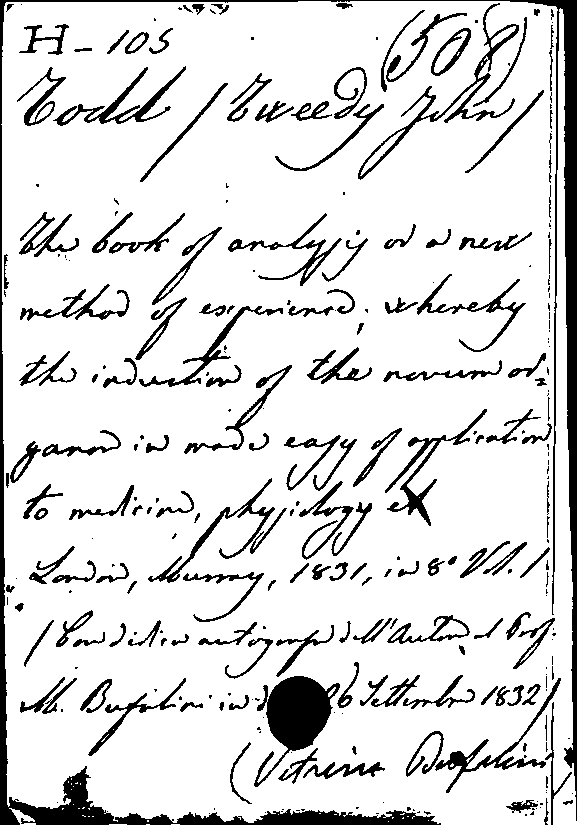 H-105 (508)
Todd / Tweedy John /
The book of analysis or a new
method of experience; whereby
the induction of the novum or=
ganon is made easy of application
to medicine, physiology
London, Murray, 1831, in 8° Vol. 1
(Con dedica autografa dell'Autore al Prof.
M. Bufalini in d 26 Settembre 1832)
(Vetrina Bufalini